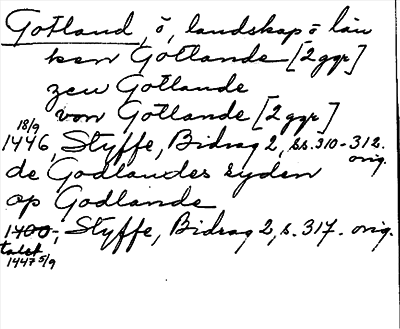 Gotland, ö, landskap o län
ken Gotlande [2 ggr]
zcu Gotlande
von Gotlande [2 ggr]
18/9
1446, Styffe, Bidrag 2, ss. 310-312.
orig.
de Godlandes syden
op Godlande
1400-, Styffe, Bidrag 2, s. 317. orig.
talet
1447 5/9